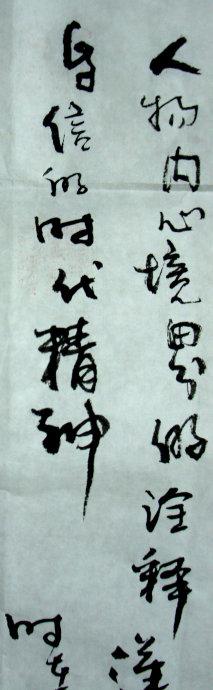 人物内心境界的诠释
自信的时代精神
时